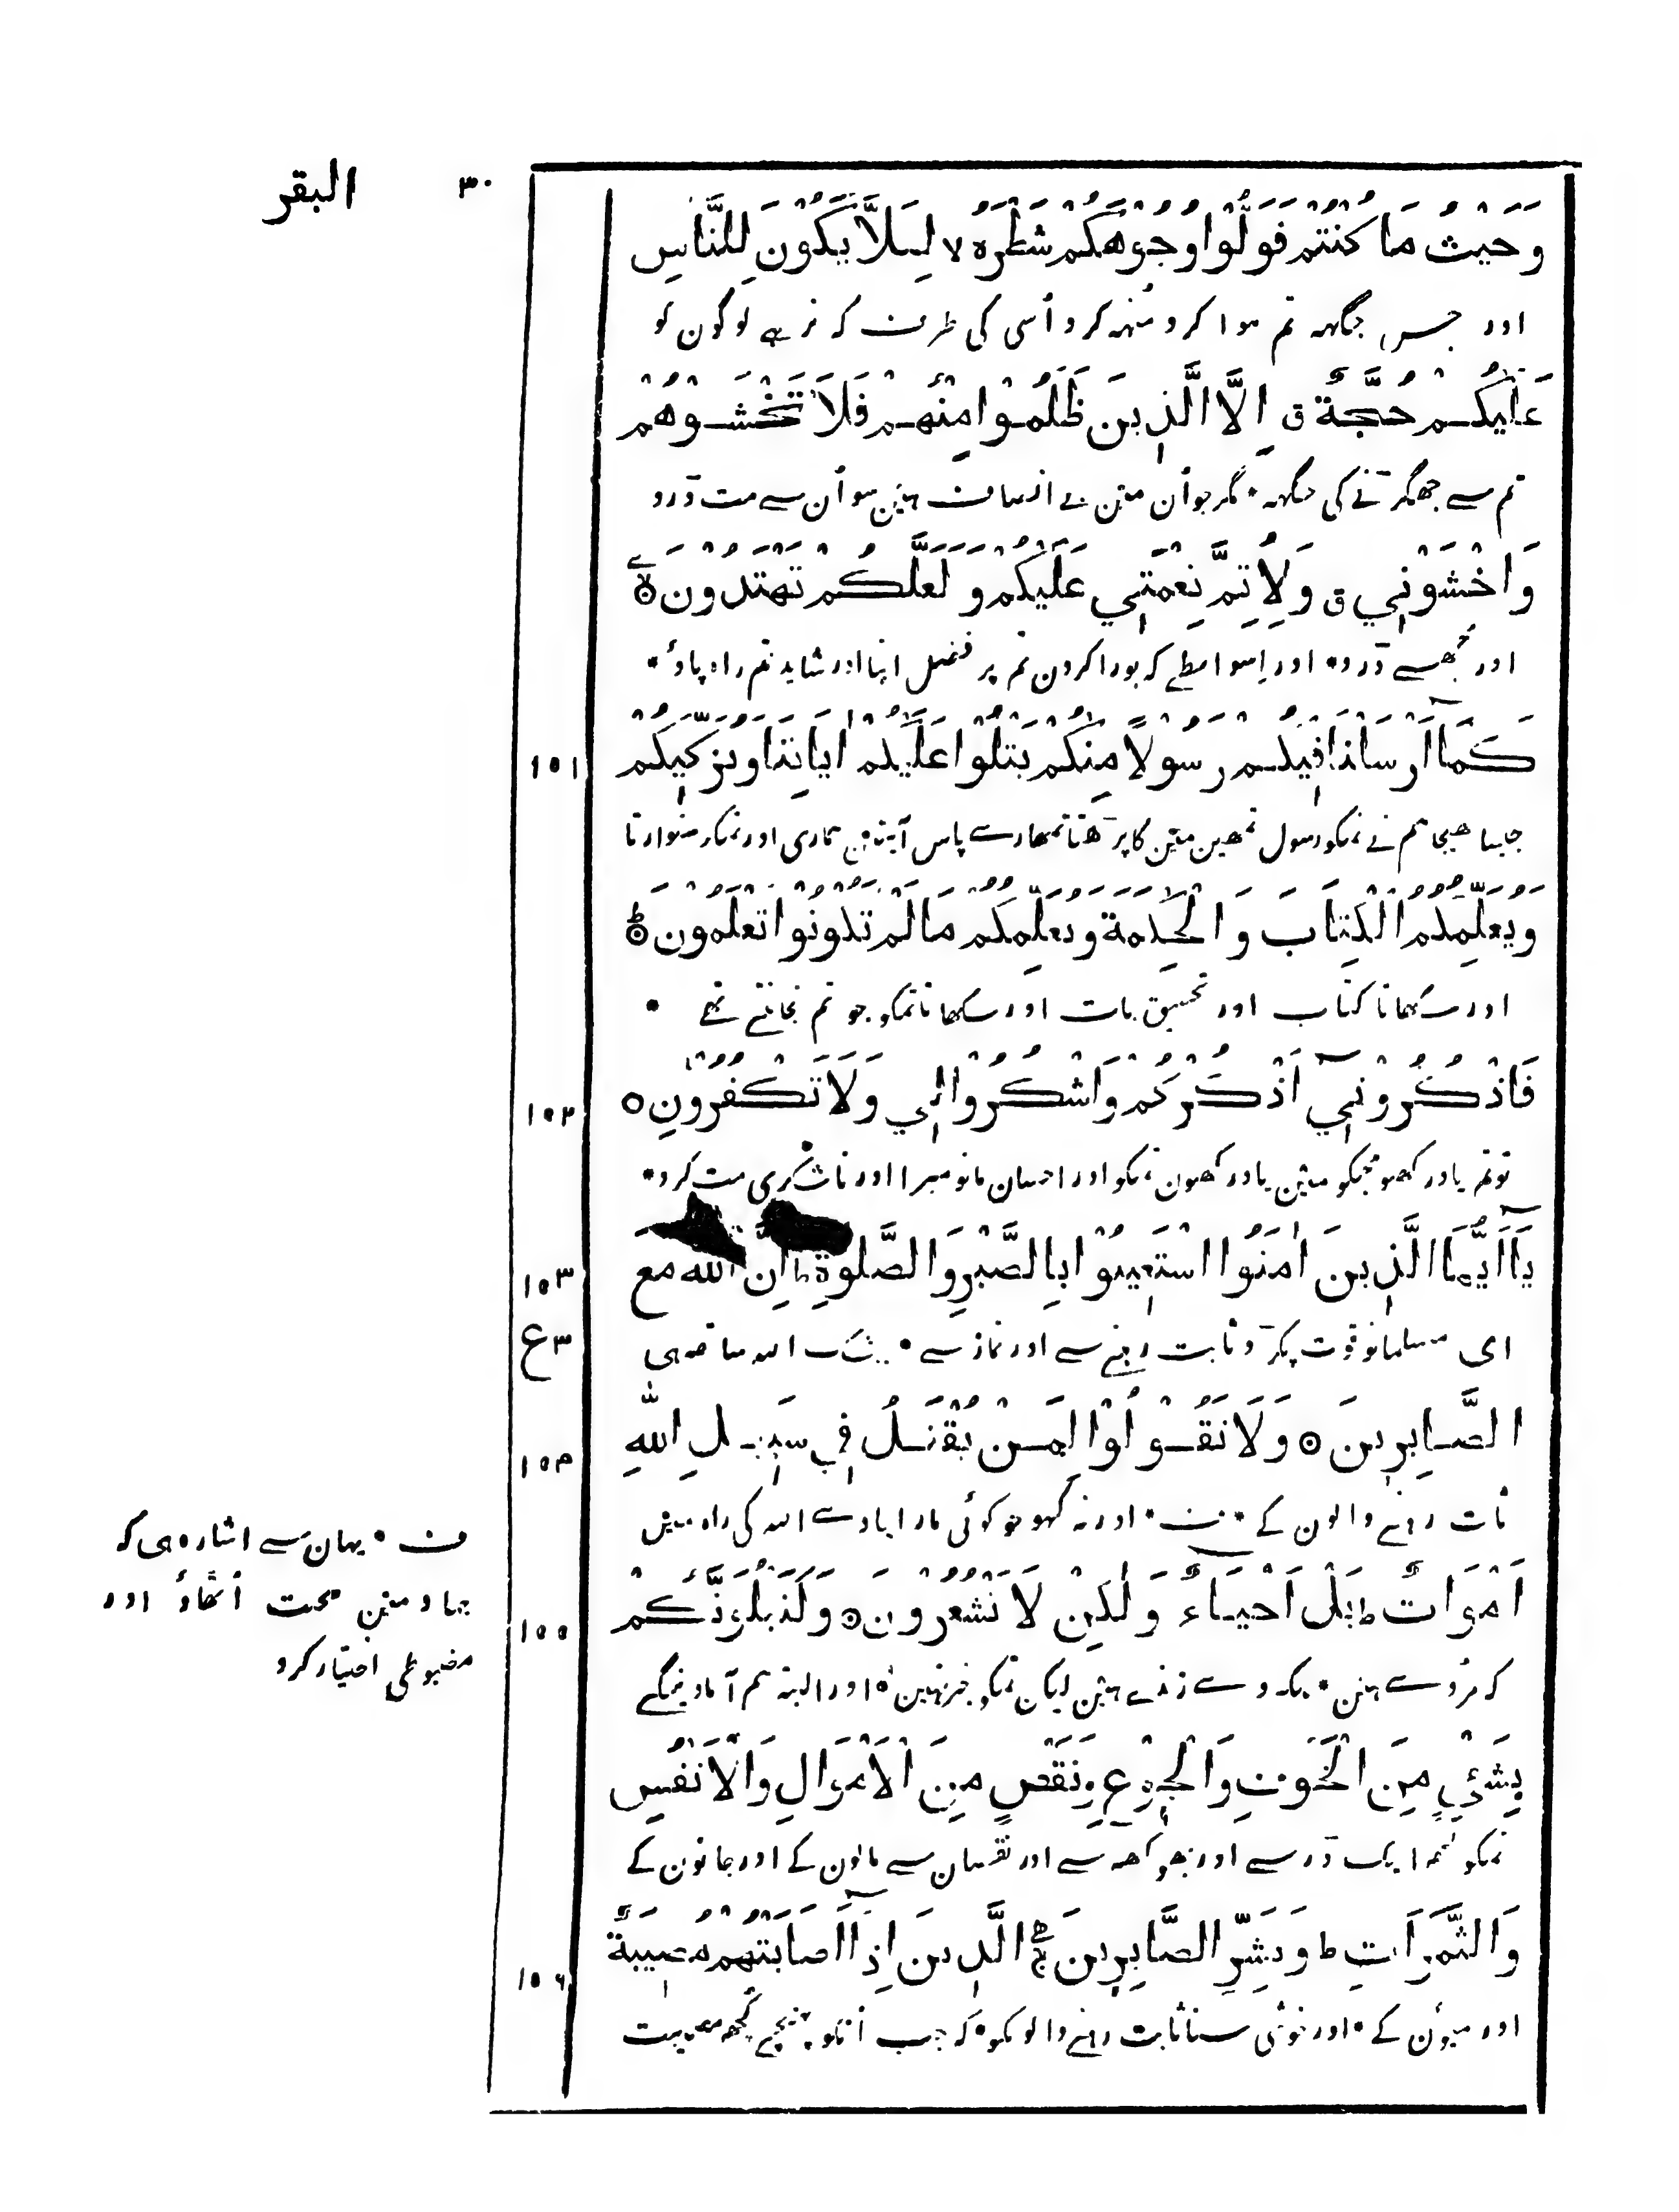 البقر ٣٠
وَحَيْثُ مَا كُنْتُمْ فَوَلُّوْا وُجُوْهَكُمْ شَطْرَهٗ لا لِئَلَّا يَكُوْنَ لِلنَّاسِ
اور جس جگہہ تم ہوا کرو منہہ کرو اُسی کی طرف کہ نرہے لوگون کو
عَلَيْكُمْ حُجَّةٌ ق اِلَّا الَّذِيْنَ ظَلَمُوْا مِنْهُمْ فَلَا تَخْشَوْهُمْ
تم سے جھگڑنے کی جگہہ • مگر جو اُن مین بے انصاف ہین سو اُن سے مت ڈرو
وَاخْشَوْنِيْ ق وَلِاُتِمَّ نِعْمَتِيْ عَلَيْكُمْ وَلَعَلَّكُمْ تَهْتَدُوْنَ
اور مجھسے ڈرو • اور اِسواسطے کہ پورا کرون تم پر فضل اپنا اور شاید تم راہ پاؤ •
١٥١ كَمَا اَرْسَلْنَا فِيْكُمْ رَسُوْلًا مِنْكُمْ يَتْلُوْا عَلَيْكُمْ اٰيَاتِنَا وَيُزَكِّيْكُمْ
جیسا بھیجا ہم نے تمکو رسول تمھین مین کا پڑھتا تمھارے پاس آیتین ہماری اور تمکو سنوارتا
وَيُعَلِّمُكُمُ الْكِتَابَ وَالْحِكْمَةَ وَيُعَلِّمُكُمْ مَا لَمْ تَكُوْنُوْا تَعْلَمُوْنَ ط
اور سکھاتا کتاب اور تحقیق بات اور سکھاتا تمکو جو تم نجانتے تھے •
١٥٢ فَاذْكُرُوْنِيْٓ اَذْكُرْكُمْ وَاشْكُرُوْا لِيْ وَلَا تَكْفُرُوْنِ
تو تم یاد رکھو مجکو مین یاد رکھون تمکو اور احسان مانو میرا اور ناشکری مت کرو •
١٥٣ يَآ اَيُّهَا الَّذِيْنَ اٰمَنُوا اسْتَعِيْنُوْا بِالصَّبْرِ وَالصَّلٰوةِ ط اِنَّ اللّٰهَ مَعَ
٣ع ای مسلمانو قوت پکڑو ثابت رہنے سے اور نماز سے • بیشک اللہ ساتھہ ہی
١٥٤ الصَّابِرِيْنَ وَلَا تَقُوْلُوْا لِمَنْ يُقْتَلُ فِيْ سَبِيْلِ اللّٰهِ
ثابت رہنے والون کے • ف • اور نہ کہو جو کوئی مارا جاوے اللہ کی راہ مین
١٥٥ اَمْوَاتٌ ط بَلْ اَحْيَاءٌ وَلٰكِنْ لَا تَشْعُرُوْنَ وَلَنَبْلُوَنَّكُمْ
کہ مُردے ہین • بلکہ وے زندے ہین لیکن تمکو خبر نہین • اور البتہ ہم آزماوینگے
بِشَيْءٍ مِنَ الْخَوْفِ وَالْجُوْعِ وَنَقْصٍ مِنَ الْاَمْوَالِ وَالْاَنْفُسِ
تمکو کچھہ ایک ڈر سے اور بھوکھہ سے اور نقصان سے مالون کے اور جانون کے
١٥٦ وَالثَّمَرَاتِ ط وَبَشِّرِ الصَّابِرِيْنَ الَّذِيْنَ اِذَآ اَصَابَتْهُمْ مُصِيْبَةٌ
اور میوُن کے • اور خوشی سنا ثابت رہنے والونکو • کہ جب اُنکو پہنچے کچھہ مصیبت
ف • یہان سے اشارہ ہی کہ
جہاد مین محنت اُٹھاؤ اور
مضبوطی اختیار کرو